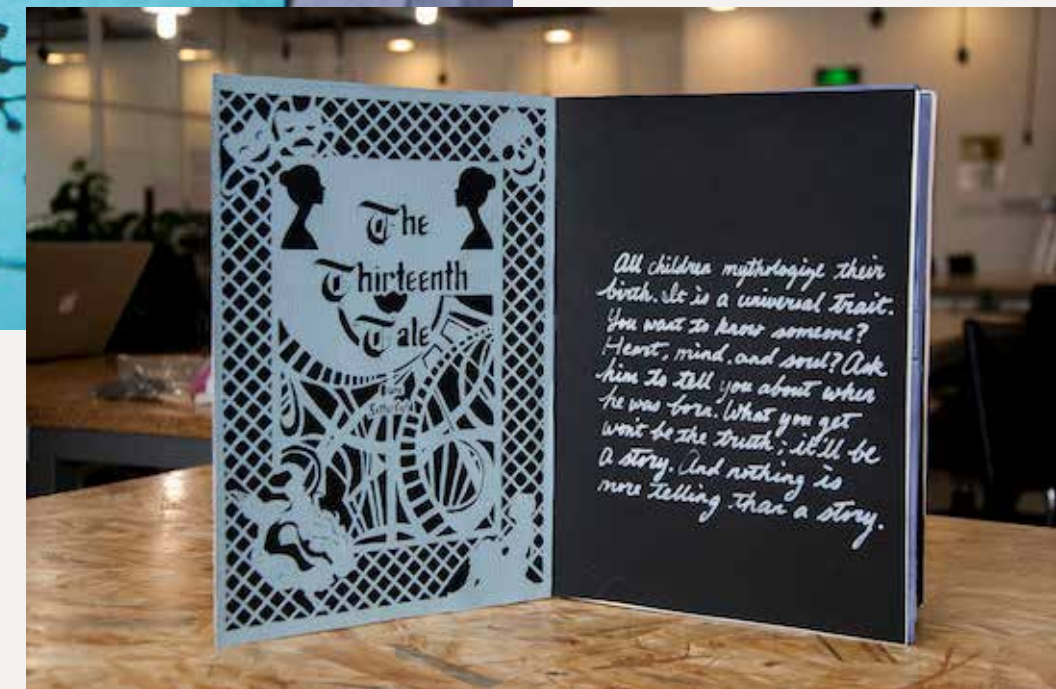 The
Thirteenth
Tale
All children mythologize their
birth. It is a universal trait.
You want to know someone?
Heart, mind, and soul? Ask
him to tell you about when
he was born. What you get
wont be the truth; it'll be
a story. And nothing is
more telling than a story.